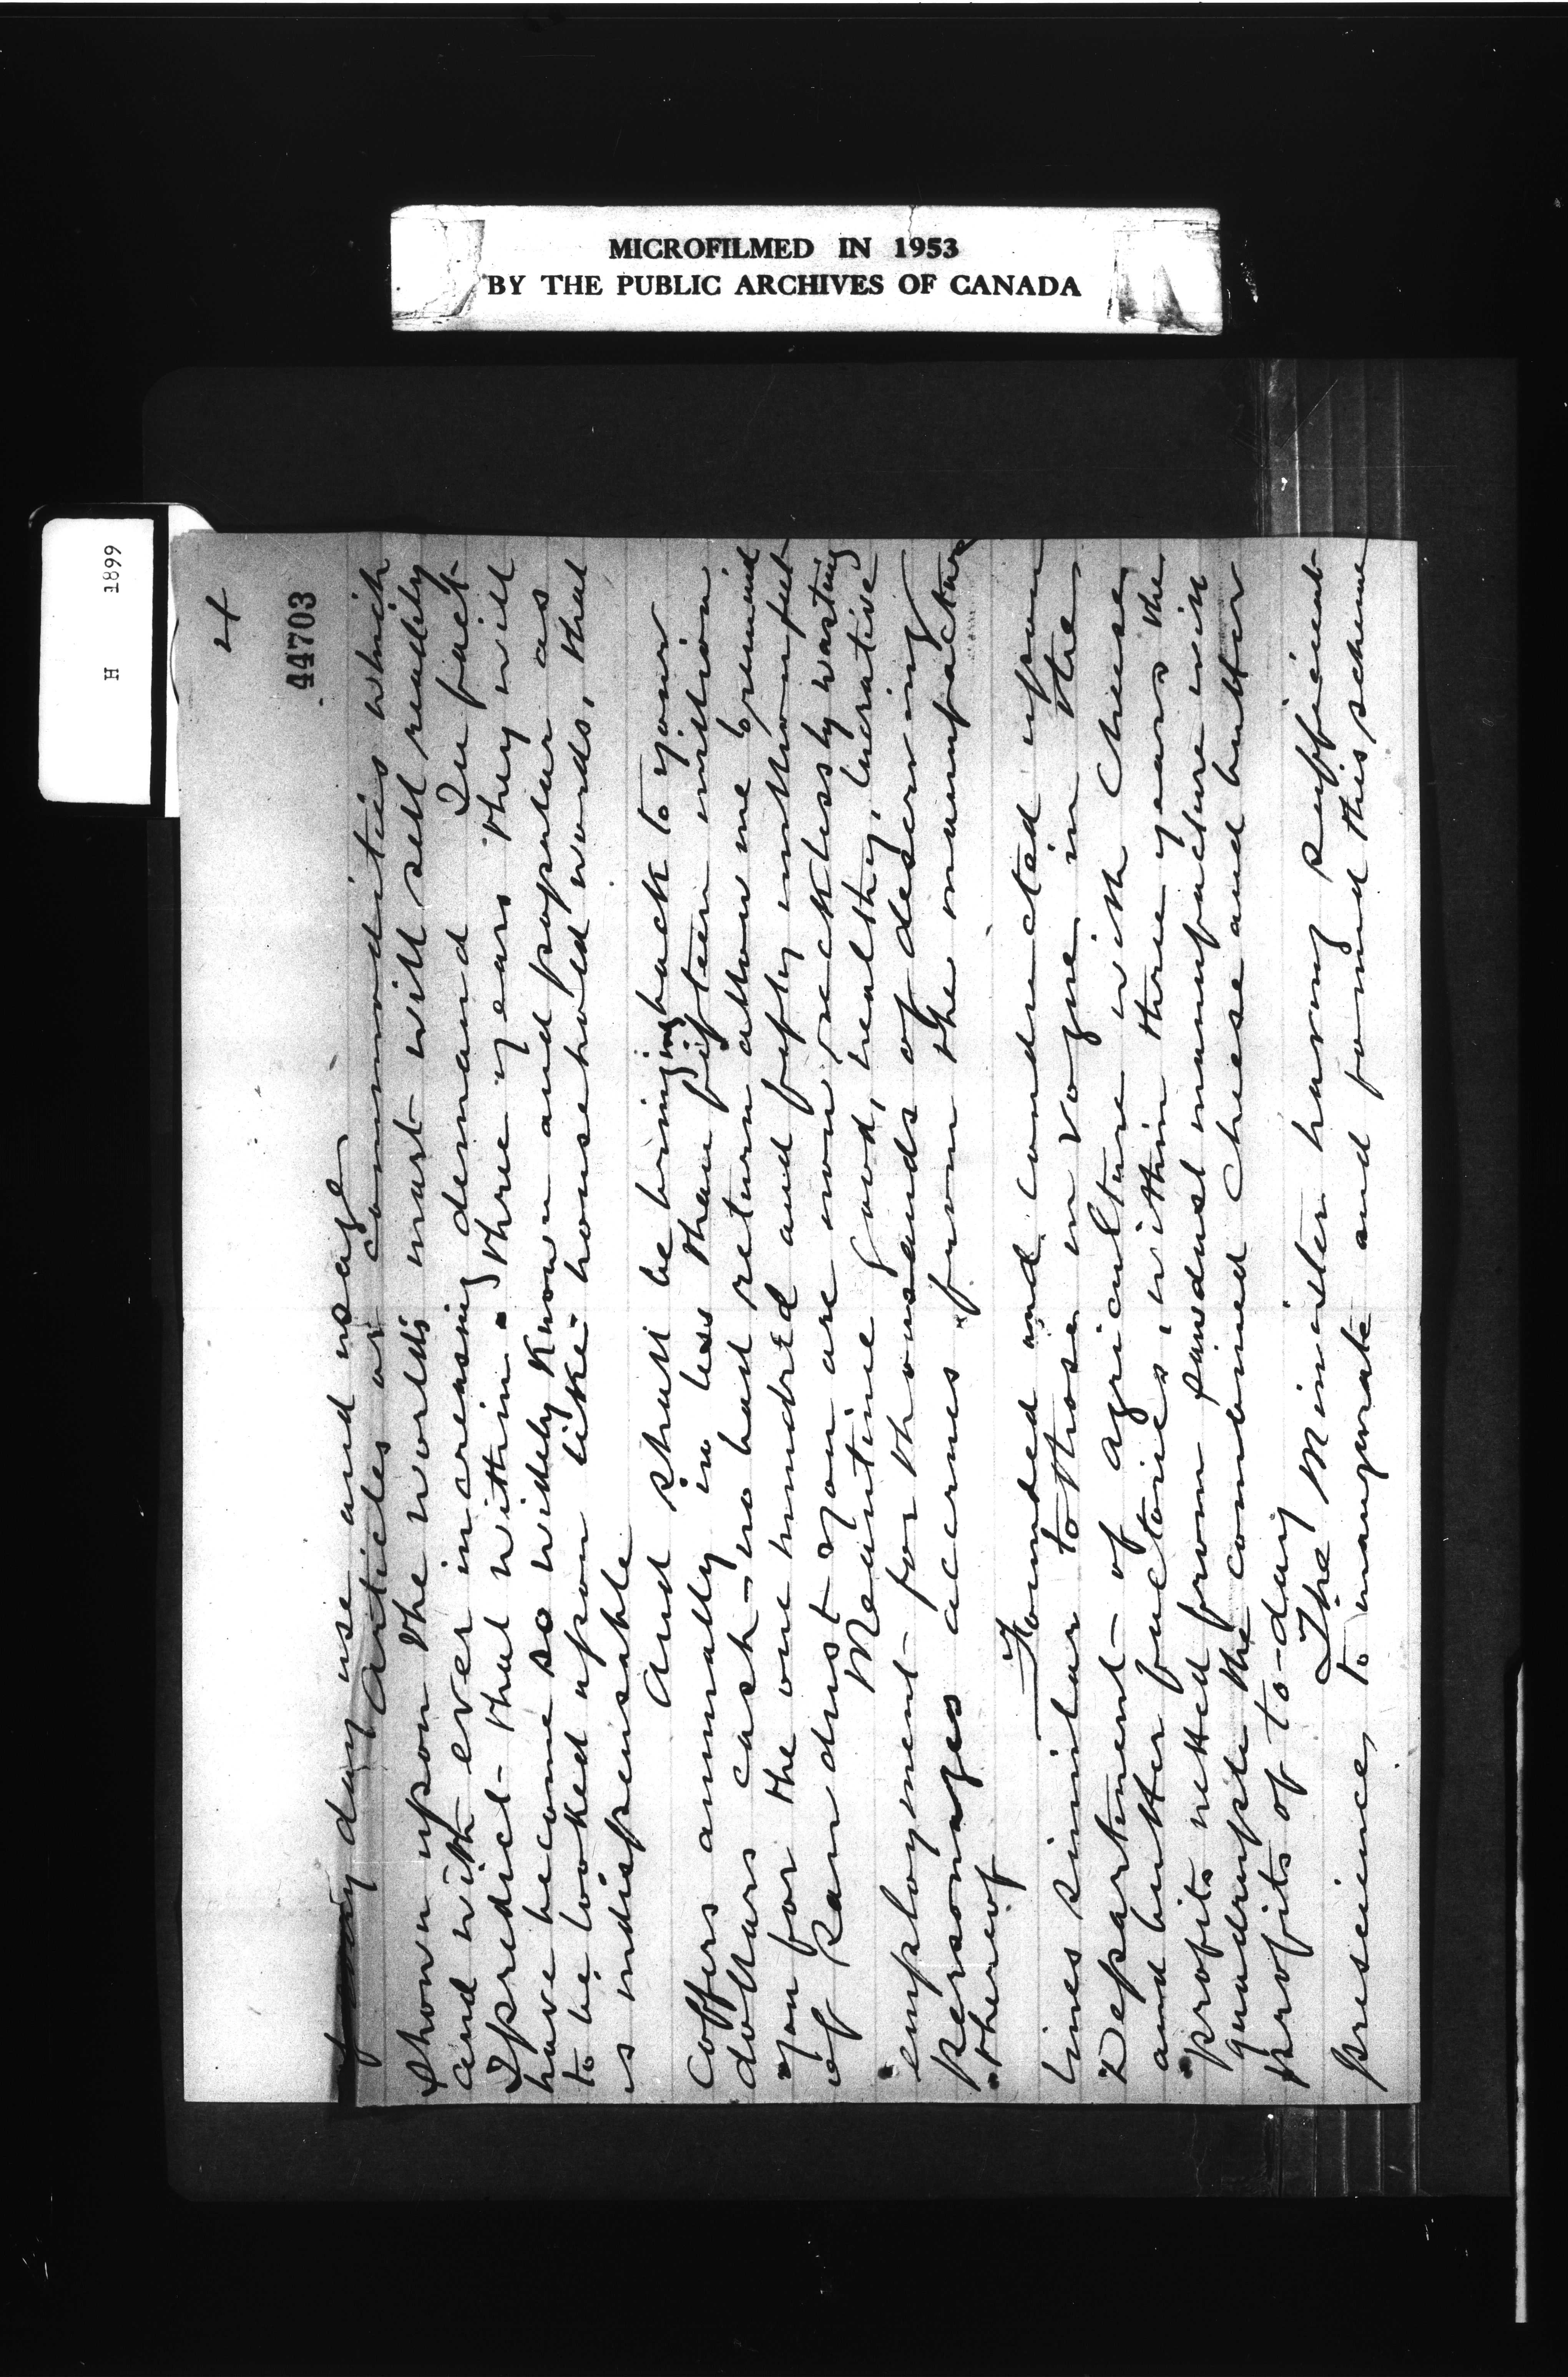 MICROFILMED IN 1953
BY THE PUBLIC ARCHIVES OF CANADA
H 1899
4
44703
day use and usage
Articles or commodities which
shown upon the worlds mart will sell readily
and with ever increasing demand In fact
I predict that within three years they will
have become so widely known and popular as
to be looked upon like household words, that
is indispensable
And shall be bringing back to your
coffers annually in less than fifteen million
dollars cash - no bad return allow me to remind
you for the one hundred and fifty million feet
of sawdust you are now recklessly wasting
Meantime good, healthy, lucrative
employment for thousands of deserving
personages accrues from the manufacture
thereof
Founded and conducted upon
lines similar to those in vogue in the
Department of agriculture with cheese
and butter factories, within three years the
profits netted from sawdust manufacture will
quadruple the combined cheese and butter
profits of to-day
The Minister having sufficient
prescience, to inaugurate and found this scheme